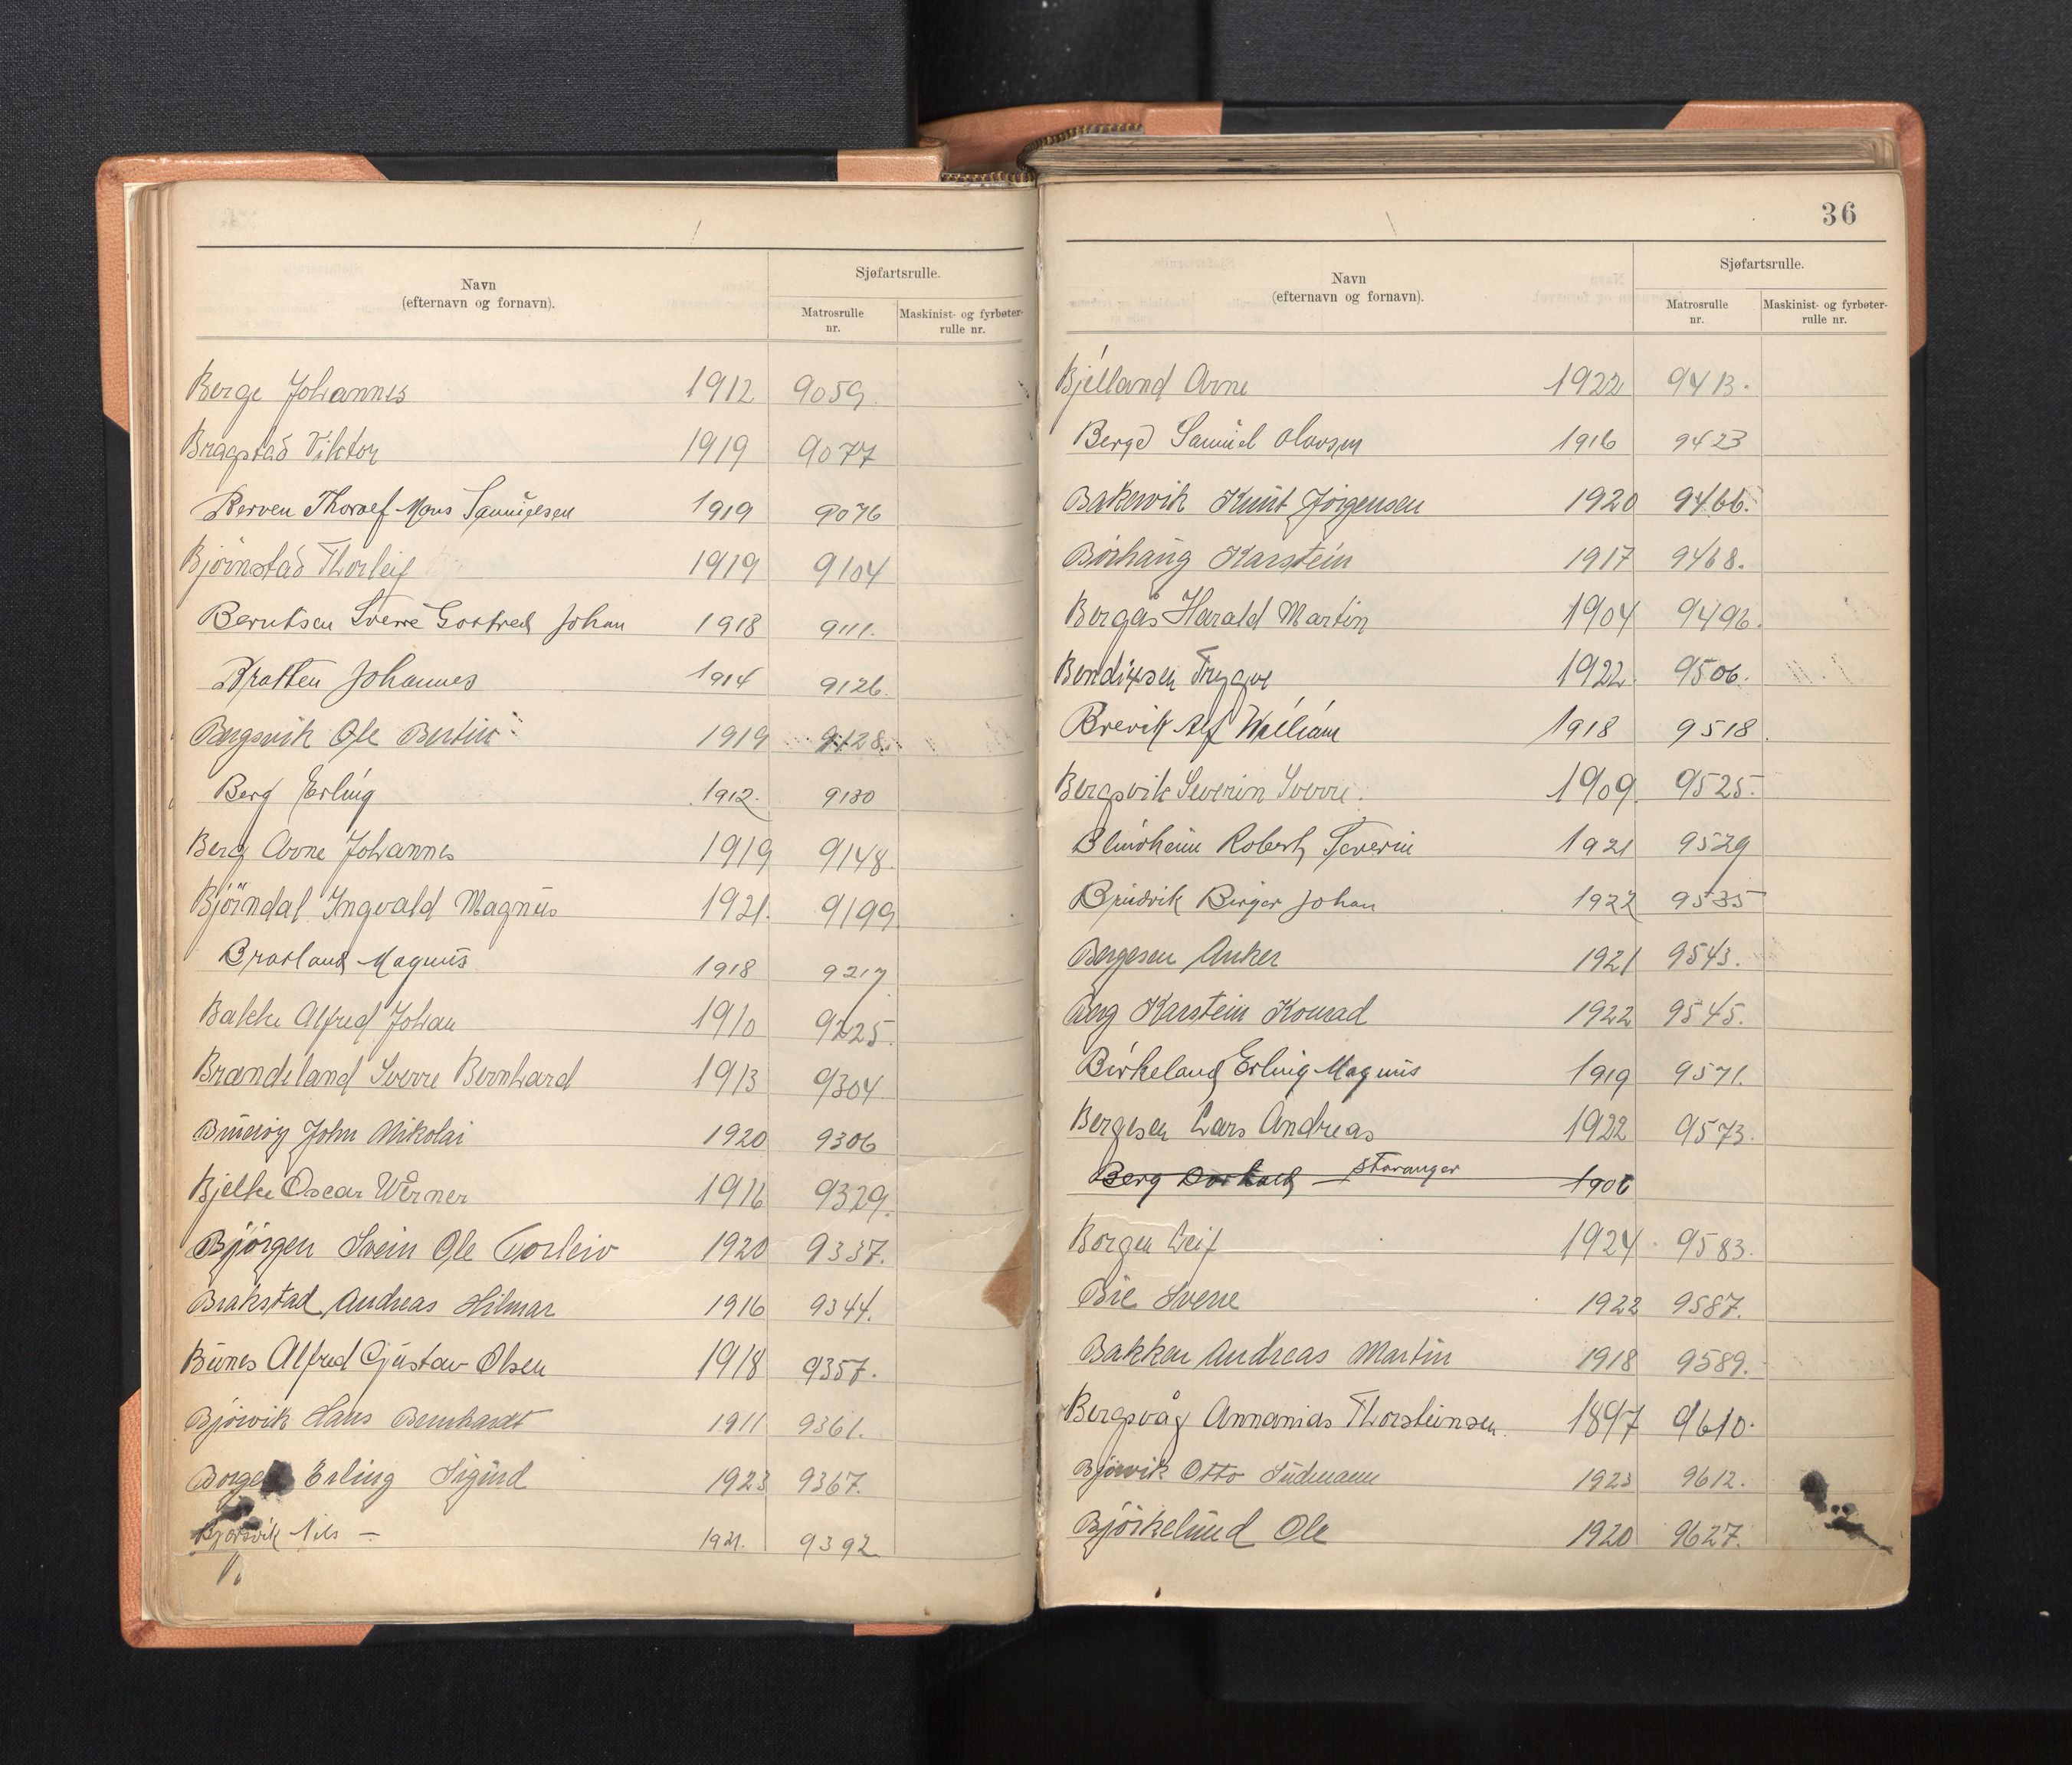 Navn
(efternavn og fornavn).
Sjøfartsrulle.
Matrosrulle nr.
Maskinist- og fyrbøter-rulle nr.
Berge Johannes 1912 9059.
Bragstad Viktor 1919 9077
Berven Thoralf Mons Samuelsen 1919 9076
Bjørnstad Thorleif 1919 9104
Berntsen Sverre Gostred Johan 1918 9111.
Bratten Johannes 1914 9126.
Bergsvik Ole Bertin 1919 9128.
Berg Erling 1912. 9130
Berg Arne Johannes 1919 9148.
Bjørndal Ingvald Magnus 1921. 9199
Magnus 1918 9217
Bakke Alfred Johan 1910 9225.
Brandeland Sverre Bernhard 1913 9304
John Nikolai 1920 9306
Bjelke Oscar Werner 1916 9329.
Bjørgen Svein Ole Torleiv 1920 9337.
Brakstad Andreas Hilmar 1916 9344.
Bunes Alfred Gustav Olsen 1918 9357.
Bjørvik Hans Bernhardt 1911 9361.
Borgen Erling Sigurd 1923 9367.
Nils — 1921. 9392
36
Navn
(efternavn og fornavn).
Sjøfartsrulle.
Matrosrulle nr.
Maskinist- og fyrbøter-rulle nr.
Bjelland Arne 1922 9413.
Berge Samuel Olavsen 1916 9423
Bakervik Knut Jørgensen 1920 9466.
Børhaug Karstein 1917 9468.
Bergås Harald Martin 1904 9496.
Bendixsen Trygve 1922. 9506.
Brevik Alf William 1918 9518.
Bergsvik Severin Sverre. 1909. 9525.
Blindheim Robert Severin 1921 9529
Birger Johan 1922 9535
Bergesen Anker 1921 9543.
Berg Karstein Konrad 1922 9545.
Birkeland Erling Magnus 1919 9571.
Bergesen Lars Andreas 1922 9573.
Berg — Stavanger 1906
Borgen Leif 1924 9583.
Bie Sverre 1922 9587.
Bakken Andreas Martin 1918 9589.
Bergsvåg Annanias Thorsteinsen. 1897 9610.
Bjørvik Otto Ludemann 1923 9612.
Bjørkelund Ole 1920 9627.